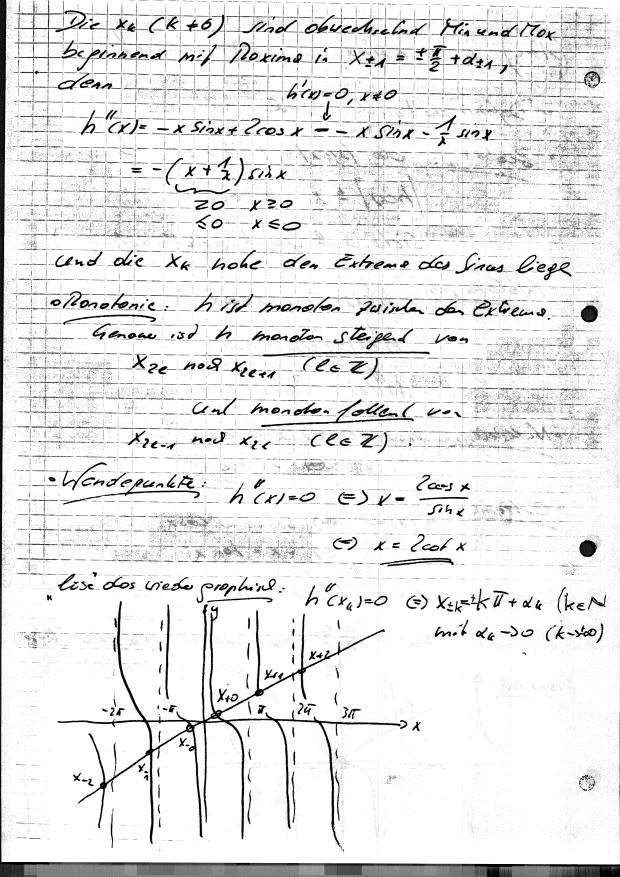 Die xₖ (k≠0) sind abwechselnd Min und Max
beginnend mit Maxima in x±1 = ±π/2 + α±1,
denn
h'(x)=0, x≠0
h''(x) = -x sin x + 2cos x = - x sin x - 1/x sin x
= -(x + 1/x) sin x
≥0 x≥0
≤0 x≤0
und die xₖ nahe den Extrema des Sinus liegen
• Monotonie: h ist monoton zwischen den Extrema.
Genauer ist h monoton steigend von
x2l nach x2l+1 (l∈ℤ)
und monoton fallend von
x2l-1 nach x2l (l∈ℤ).
• Wendepunkte: h''(x)=0 ⇔ x = 2cos x / sin x
⇔ x = 2cot x
"löse" das wieder graphisch: h''(xₖ)=0 ⇔ x±k=±kπ + αₖ (k∈ℕ
mit αₖ→0 (k→±∞)
y
x+2
x+1
x+0
-2π -π π 2π 3π x
x-0
x-1
x-2